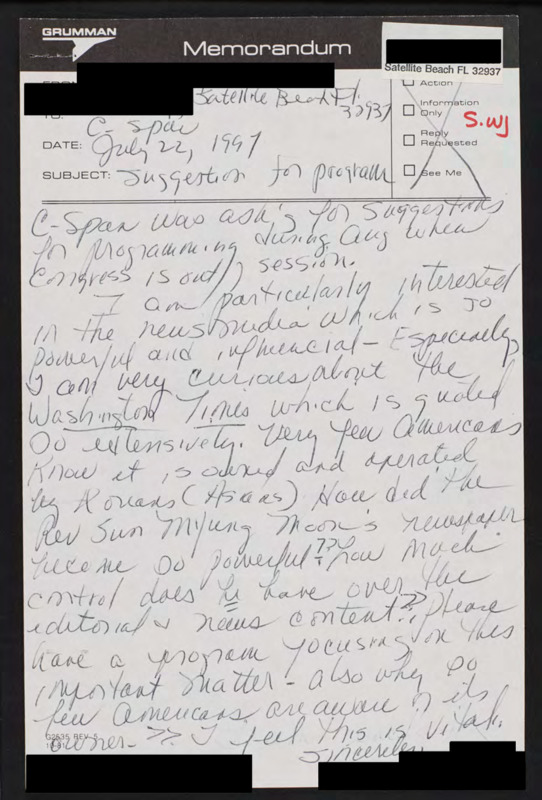 GRUMMAN
Memorandum
Satellite Beach FL 32937
Satellite Beach Fl.
32937
TO: C-Span
DATE: July 22, 1997
SUBJECT: Suggestion for program
Action
Information
Only
Reply
Requested
See Me
S.WJ
C-Span was ask'g for suggestions
for programming during Aug when
Congress is out of session.
I am particularly interested
in the news media which is so
powerful and influencial - Especially
I am very curious about the
Washington Times which is quoted
so extensively. Very few Americans
know it is owned and operated
by Koreans (Asians) How did the
Rev Sun Myung Moon's newspaper
become so powerful??? how much
control does he have over the
editorial & news content?? Please
have a program focusing on this
important matter - also why so
few Americans are aware of its
owner - ?? I feel this is vital.
Sincerely